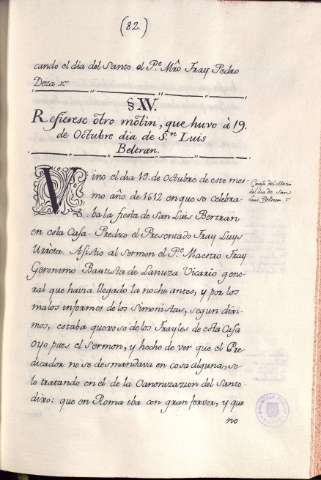 (82.)
cando el dia del Santo el P.e Mro Fray Pedro
Deza &c.
§ XV.
Refierese òtro mòtin, que huvo à 19.
de Octubre dia de S.n Luis
Beltran.
Vino el dia 19 de Octubre de este mes-
mo año de 1612 en que se celebra-
ba la fiesta de San Luis Bertran
en esta Casa. Predicò el Presentado Fray Luys
Urreta. Asistio al Sermon el P.e Maestro Fray
Geronimo Bautista de Lanuza Vicario gene-
ral que havia llegado la noche antes, y por los
malos informes de los Simonistas, segun diri-
mos, estaba quexoso de los Frayles de esta Casa
oyo pues el Sermon, y hecho de ver que el Pre-
dicador no se desmandava en cosa alguna, so-
lo tratando en el de la Canonizazion del Santo
dixo: que en Roma iba con gran fervor, y que
no
dia de San
Luis Beltran.